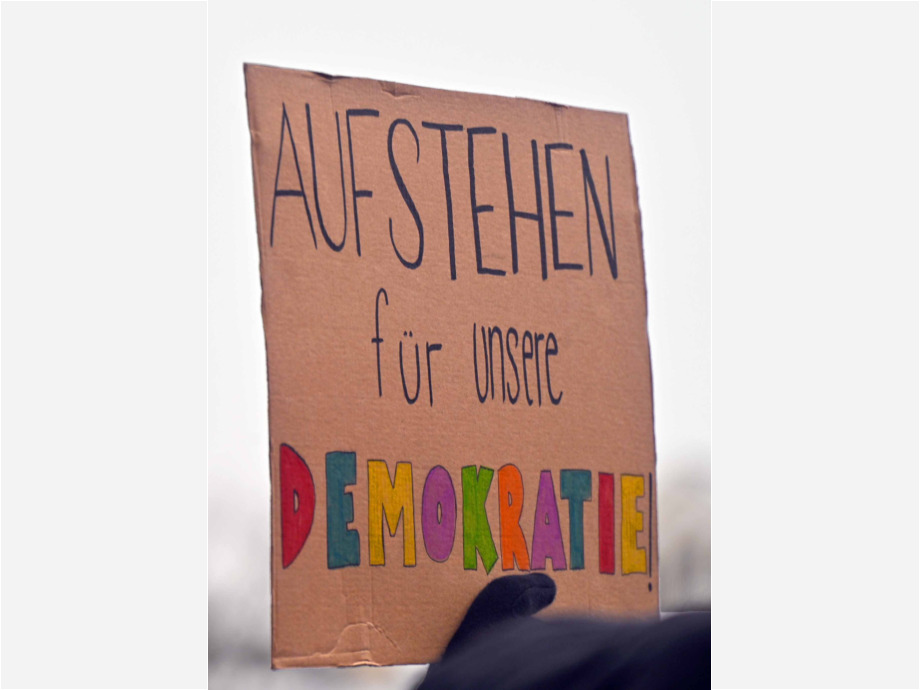 AUFSTEHEN
für unsere
DEMOKRATIE!